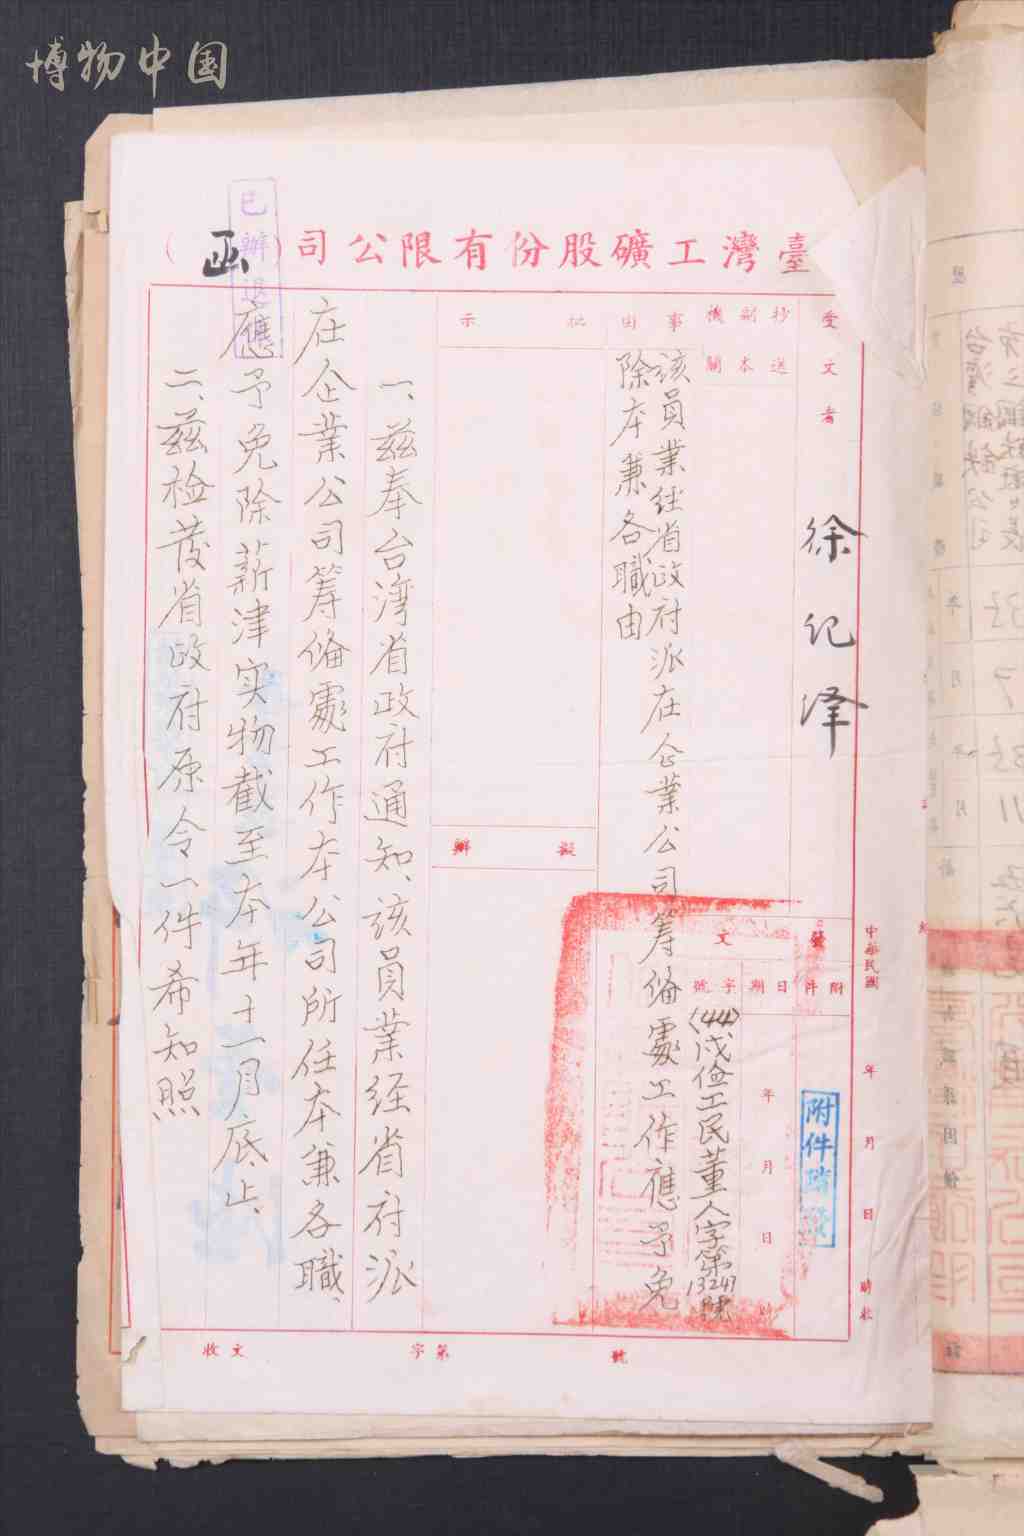 博物中国
臺灣工礦股份有限公司(函)
已辦退
受文者
徐纪泽
抄送
副本
機關
事由
該員業经省政府派在企業公司筹備處工作應予免
除本兼各職由
批示
擬辦
發文
附件
日期
字號
年月日
(44)戌俭工民董人字第13247號
附件随發
中華民國 年 月 日 時
一、兹奉台湾省政府通知、該員業经省府派
在企業公司筹備處工作本公司所任本兼各職、
應予免除薪津实物截至本年十一月底止、
二、兹检发省政府原令一件希知照
收文 字第 號